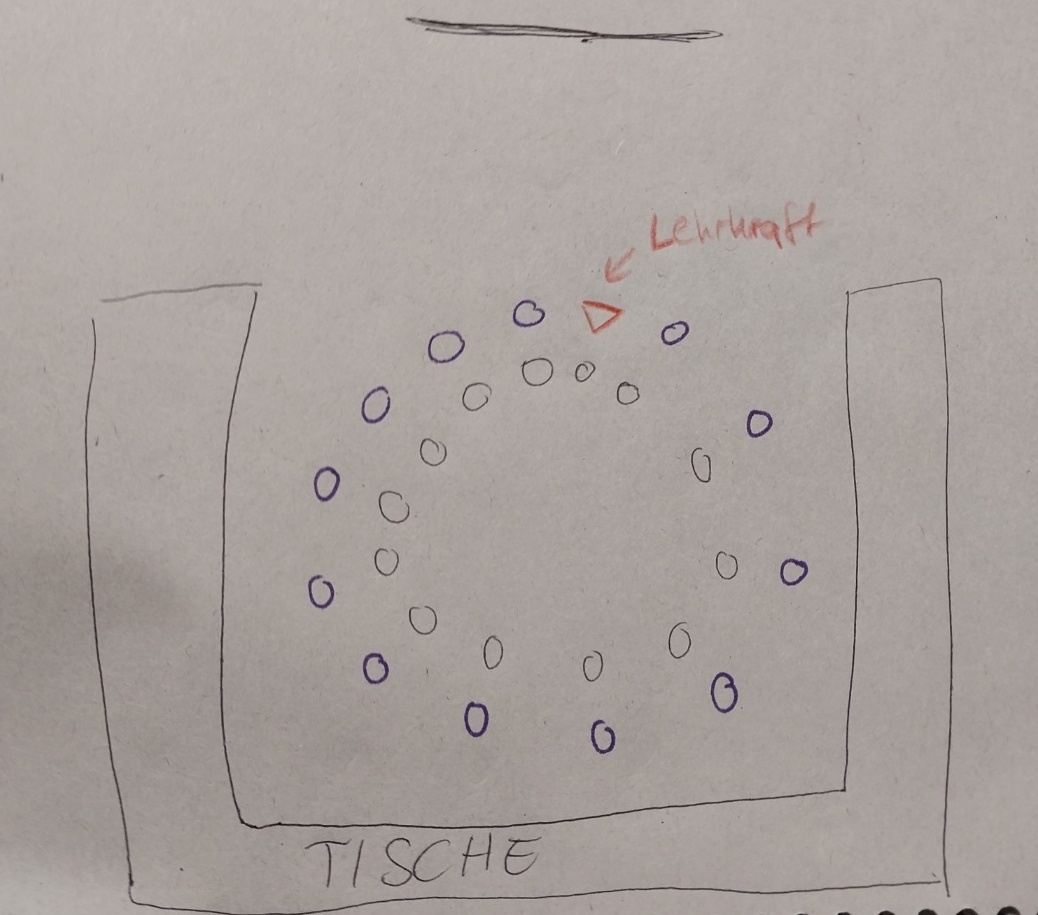 Lehrkraft
TISCHE